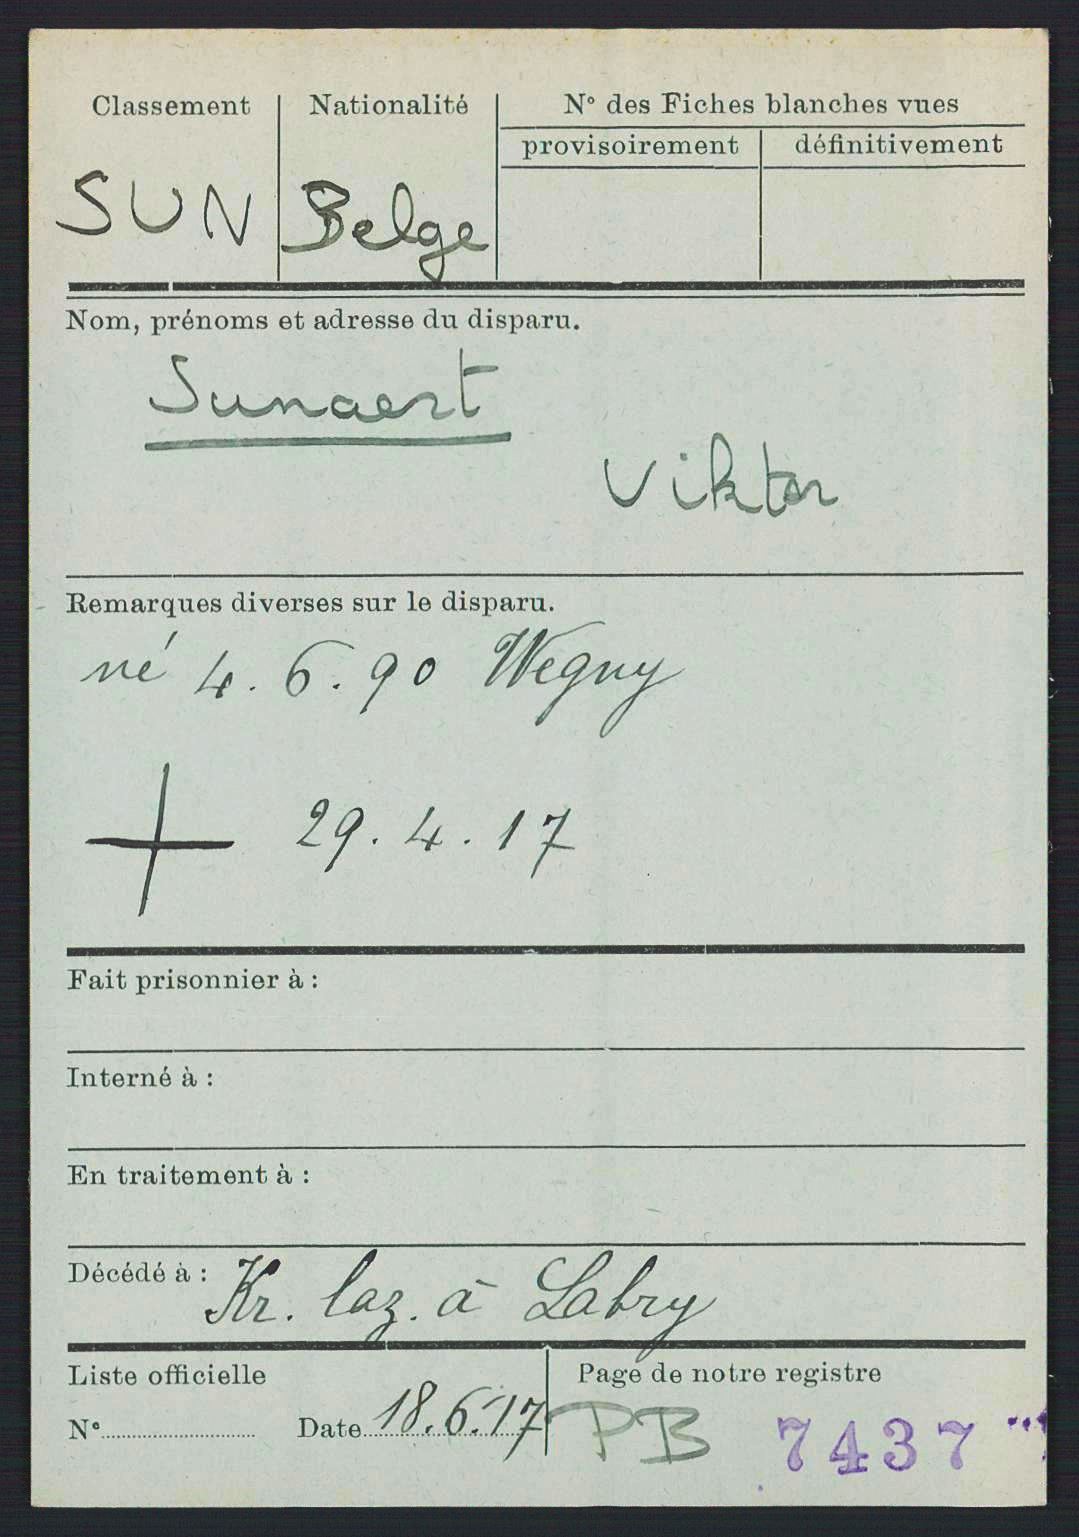 Classement
Nationalité
N° des Fiches blanches vues
provisoirement
définitivement
SUN
Belge
Nom, prénoms et adresse du disparu.
Sunaert
Viktor
Remarques diverses sur le disparu.
né 4. 6. 90 Wegny
29. 4. 17
Fait prisonnier à :
Interné à :
En traitement à :
Décédé à : Kr. laz. à Labry
Liste officielle
Page de notre registre
N° Date 18.6.17
PB 7437